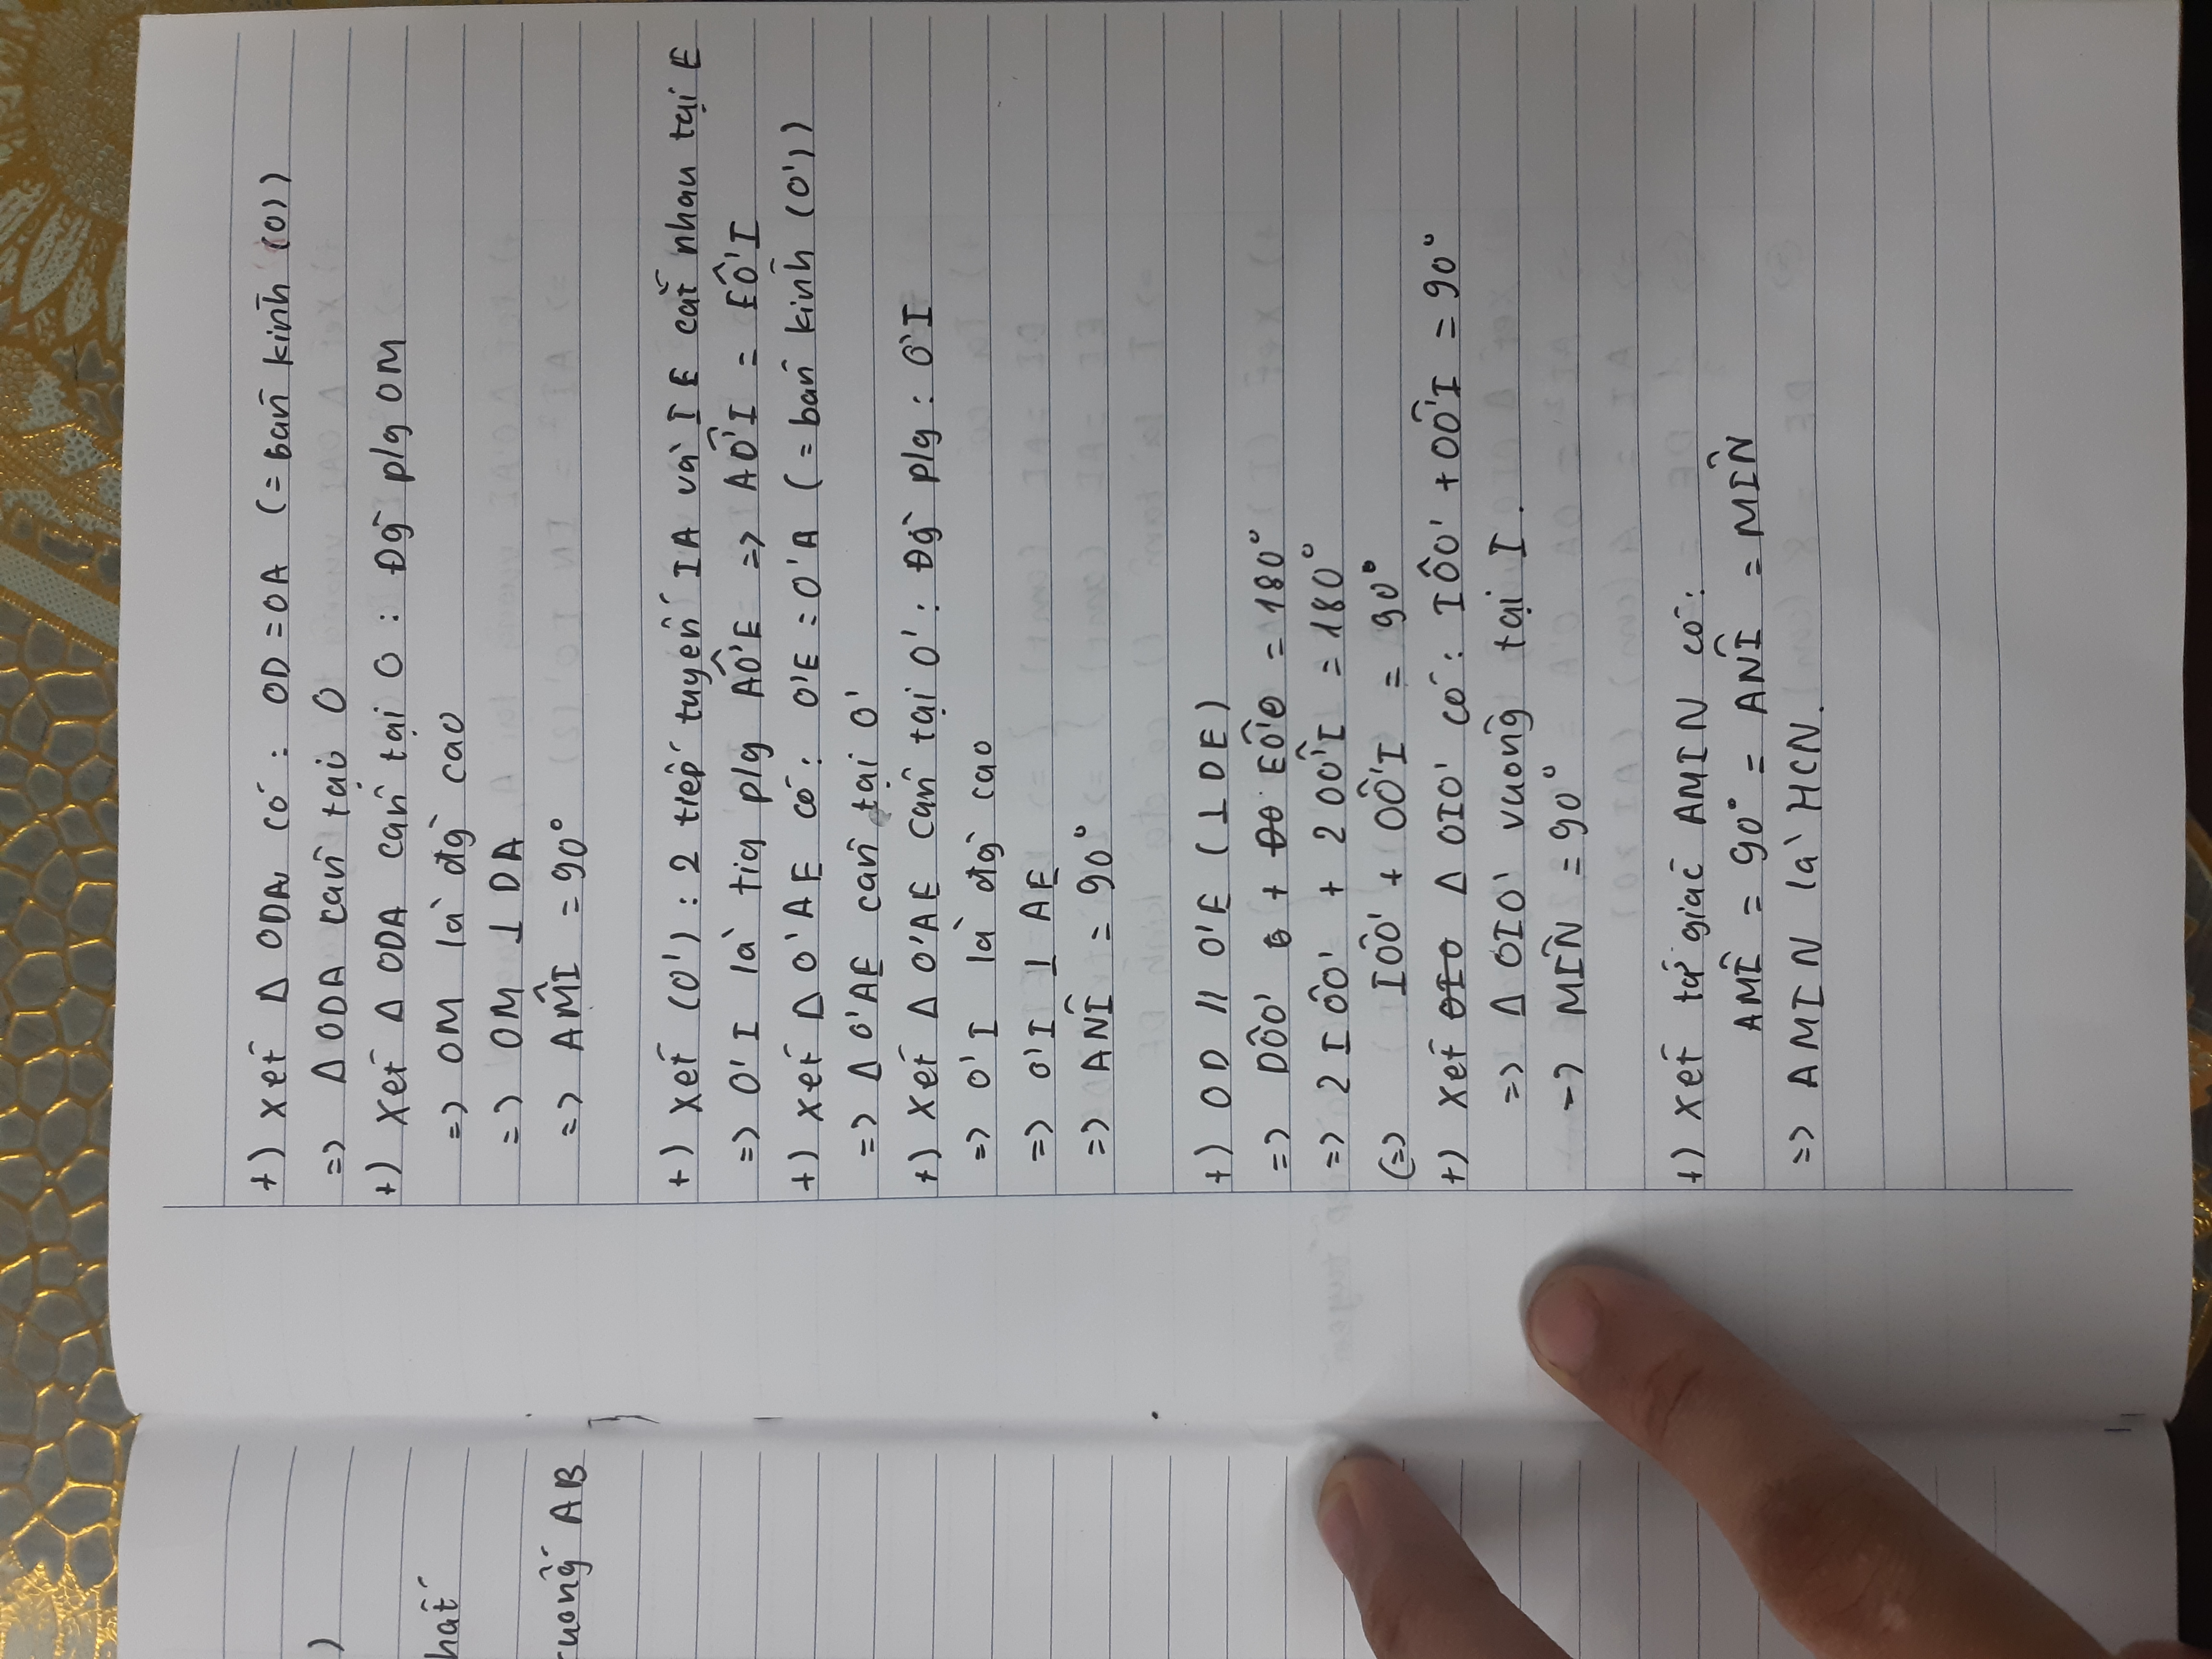 )
hất
ruông AB
+) Xét Δ ODA có : OD = OA (= bán kính (O))
=> Δ ODA cân tại O
+) Xét Δ ODA cân tại O : Đg` p/g OM
=> OM là đg` cao
=> OM ⊥ DA
=> AM̂I = 90°
+) Xét (O') : 2 tiếp tuyến IA và IE cắt nhau tại E
=> O'I là tia p/g AÔ'E => AÔ'I = EÔ'I
+) Xét Δ O'AE có : O'E = O'A (= bán kính (O'))
=> Δ O'AE cân tại O'
+) Xét Δ O'AE cân tại O' : Đg` p/g : O'I
=> O'I là đg` cao
=> O'I ⊥ AE
=> AN̂I = 90°
+) OD // O'E (⊥ DE)
=> DÔO' + EÔ'O = 180°
=> 2 IÔO' + 2 OÔ'I = 180°
(=> IÔO' + OÔ'I = 90°
+) Xét Δ OIO' có : IÔO' + OÔ'I = 90°
=> Δ OIO' vuông tại I.
-> MÎN = 90°
+) Xét tứ giác AMIN có :
AM̂I = 90° = AN̂I = MÎN
=> AMIN là HCN.